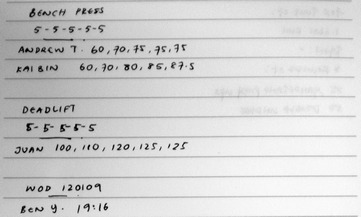 BENCH PRESS
5-5-5-5-5
ANDREW T. 60, 70, 75, 75, 75
KAI BIN 60, 70, 80, 85, 87.5
DEADLIFT
5-5-5-5-5
JUAN 100, 110, 120, 125, 125
WOD 120109
BEN Y. 19:16